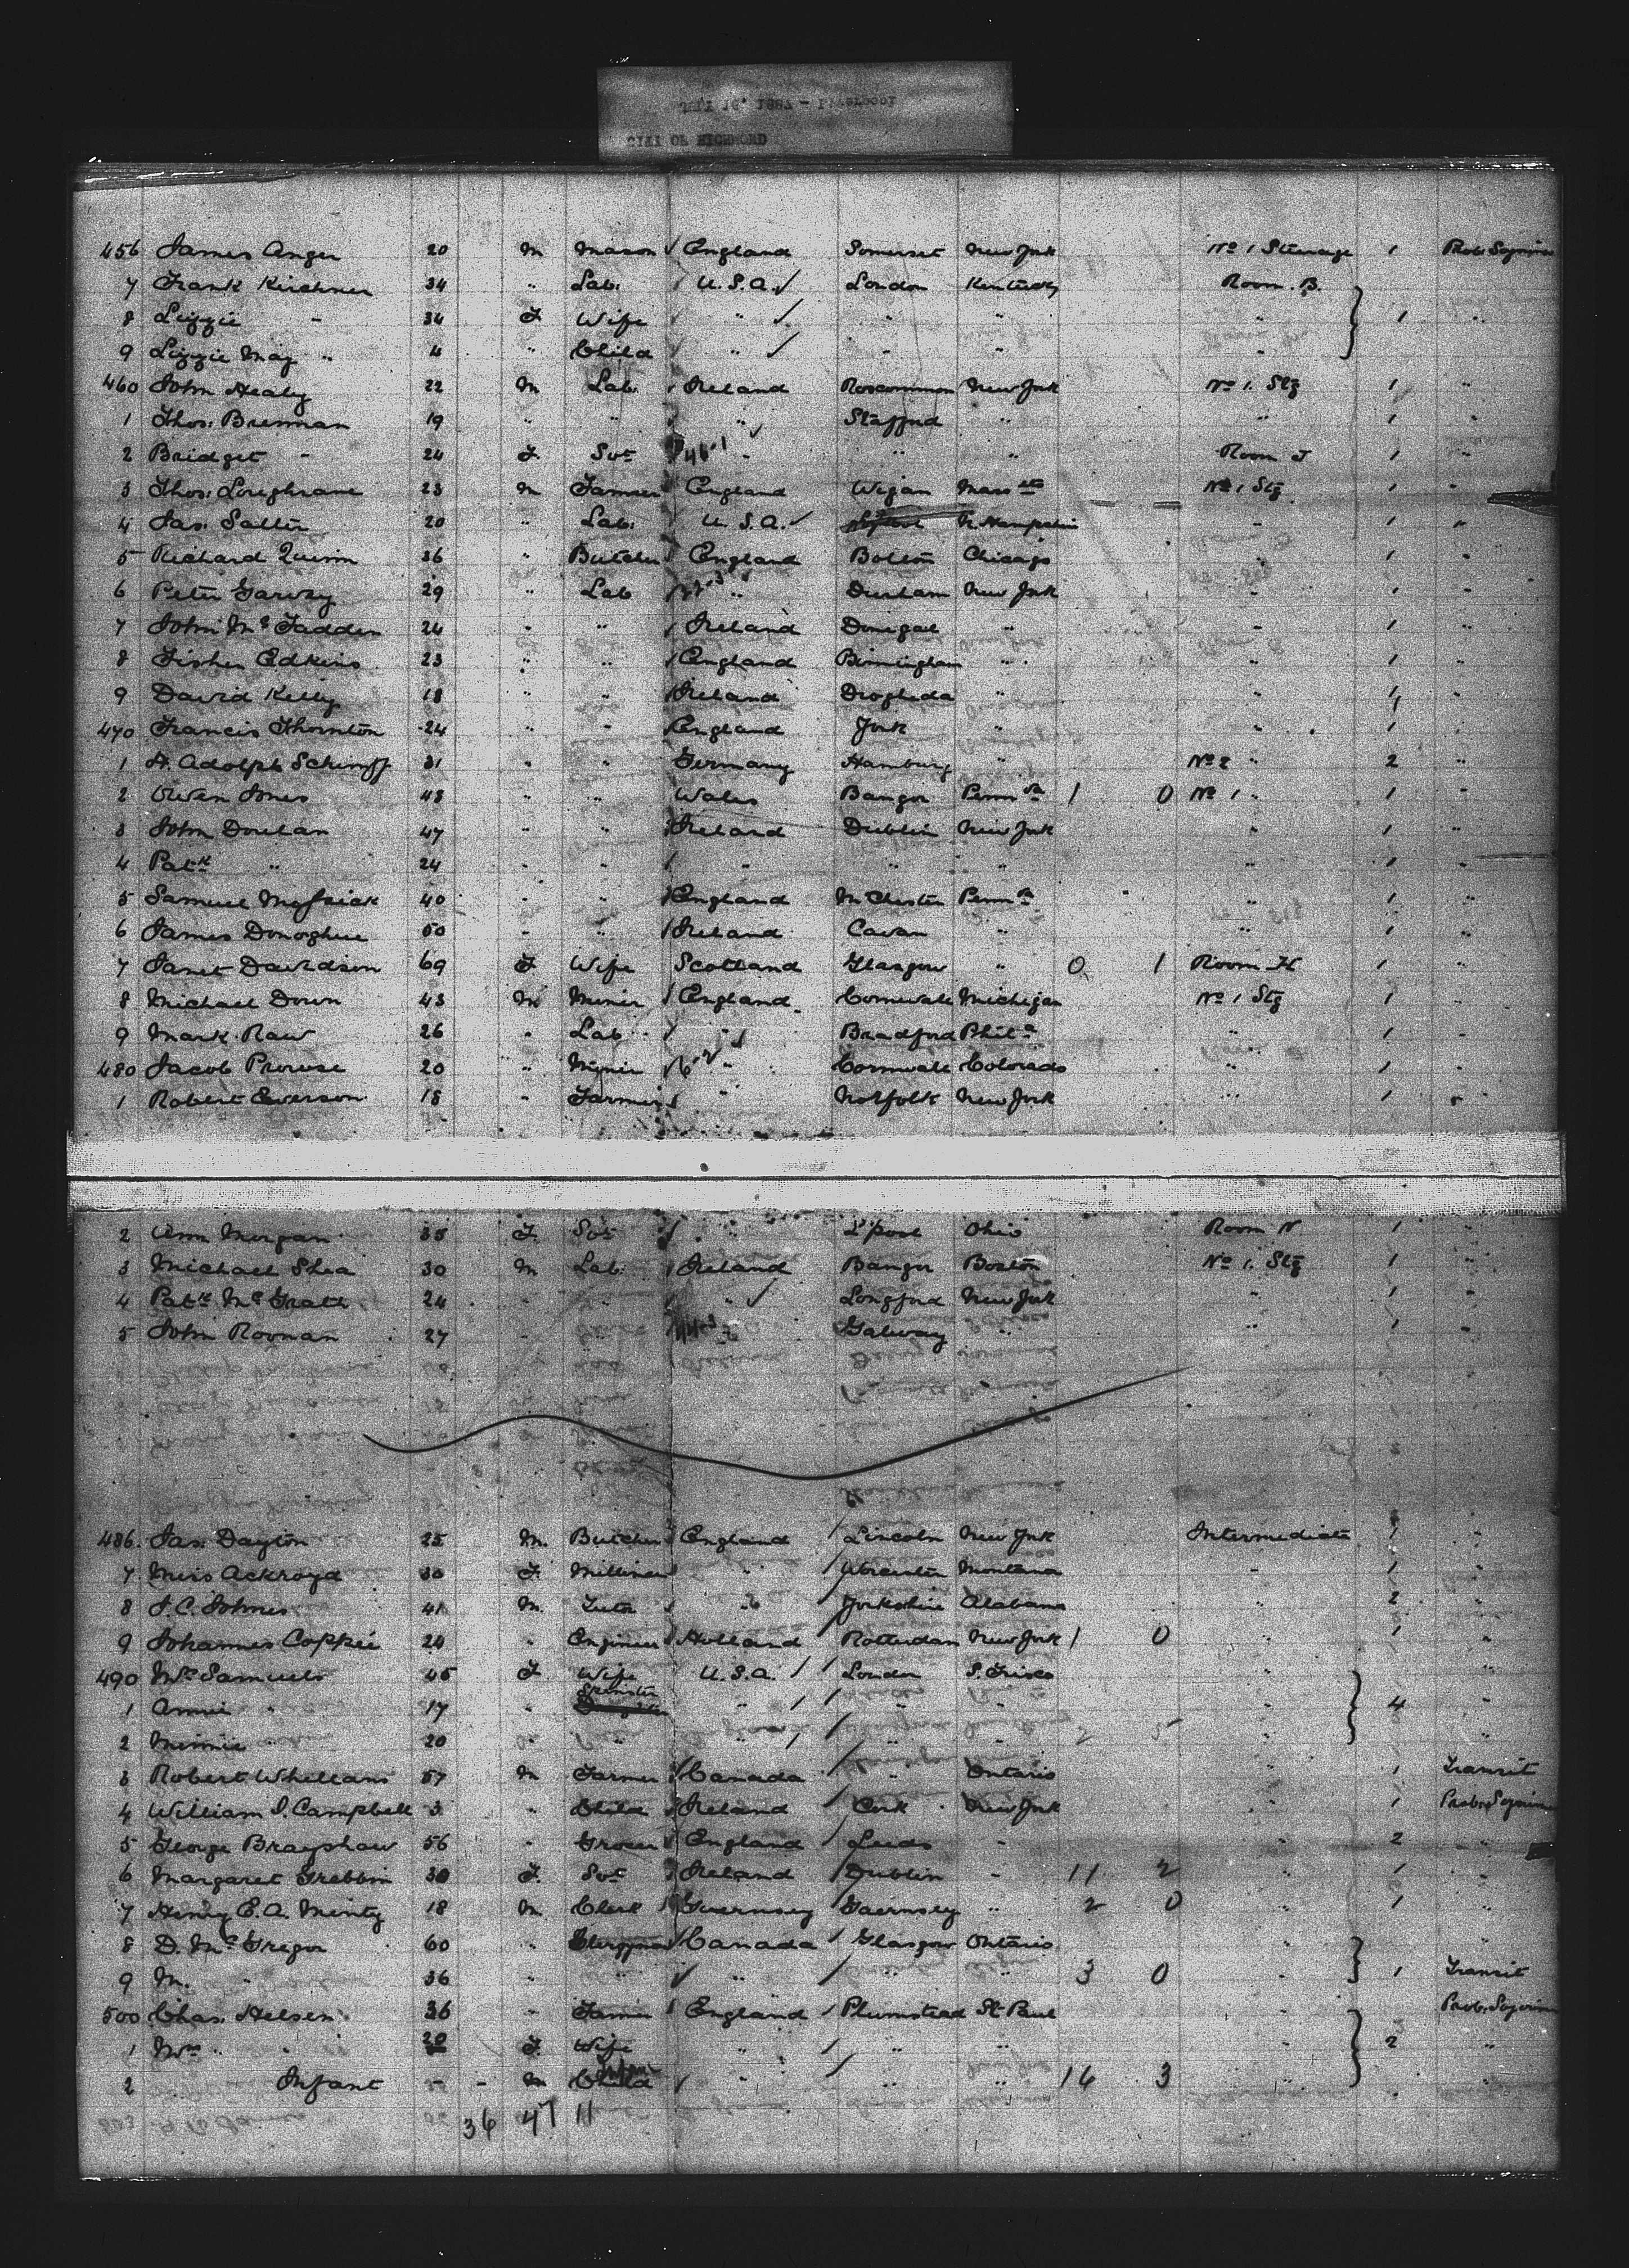 CITY OF RICHMOND
456 James Anger 20 M Mason England Somerset New York No 1 Steerage 1 Prob. Sojourn
7 Frank Kirchner 34 " Lab. U.S.A. London Kentucky Room B.
8 Lizzie " 34 F Wife " " " " 1 "
9 Lizzie May " 4 " Child " " " "
460 John Healy 22 M Lab. Ireland Roscommon New York No 1. Stg 1 "
1 Thos. Brennan 19 " " " Stafford " " 1 "
2 Bridget " 24 F. Svt " " " Room J 1 "
3 Thos. Loughrane 23 M Farmer England Wigan Masstts No 1 Stg 1 "
4 Jas. Salter 20 " Lab. U.S.A. N. Hampshire " 1 "
5 Richard Quinn 36 " Butcher England Bolton Chicago " 1 "
6 Peter Garvey 29 " Lab " Durham New York " 1 "
7 John McFadden 24 " " Ireland Donegal " " 1 "
8 Fisher Edkins 23 " " England Birmingham " " 1 "
9 David Kelly 18 " " Ireland Drogheda " " 1 "
470 Francis Thornton 24 " " England York " " 1 "
1 A. Adolph Schimpf 31 " " Germany Hamburg " No 2 " 2 "
2 Owen Jones 48 " " Wales Bangor Penna 1 0 No 1 " 1 "
3 John Doulan 47 " " Ireland Dublin New York " 1 "
4 Patk " 24 " " " " " " 1 "
5 Samuel 40 " " England M'Chester Penna " 1 "
6 James Donoghue 50 " " Ireland Cavan " " 1 "
7 Janet Davidson 69 F Wife Scotland Glasgow " 0 1 Room H 1 "
8 Michael Down 43 M Miner England Cornwall Michigan No 1 Stg 1 "
9 Mark Raw 26 " Lab " Bradford Phila " 1 "
480 Jacob Prowse 20 " Miner " Cornwall Colorado " 1 "
1 Robert Everson 18 " Farmer " Norfolk New York " 1 "
2 Ann Morgan 35 F. Svt " L'pool Ohio Room N 1 "
3 Michael Shea 30 M Lab. Ireland Bangor Boston No 1. Stg 1 "
4 Patk McGrath 24 " " " Longford New York " 1 "
5 John Roonan 27 " " " Galway " " 1 "
486. Jas. Dayton 25 M. Butcher England Lincoln New York Intermediate 1 "
7 Miss Ackroyd 30 F. Milliner " Worcester Montana " 1 "
8 J.C. Holmes 41 M. " Yorkshire Alabama " 2 "
9 Johannes Coppei 24 " Engineer Holland Rotterdam New York 1 0 " 1 "
490 Mrs Samuels 45 F Wife U.S.A. London S. Frisco " "
1 Annie " 17 " Spinster " " " " 4 "
2 Minnie " 20 " " " " " " "
3 Robert Whellans 57 M Farmer Canada " Ontario " 1 Transit
4 William J. Campbell 3 " Child Ireland Cork New York " 1 Prob. Sojourn
5 George Brayshaw 56 " Grocer England Leeds " " 2 "
6 Margaret Grebbin 30 F. Svt Ireland Dublin " 11 2 " 1 "
7 Henry E.A. Minty 18 M. Clerk Guernsey Guernsey " 2 0 " 1 "
8 D. McGregor 60 " Clergyman Canada Glasgow Ontario " "
9 M. " 36 " " " " " 3 0 " 1 Transit
500 Chas. Helsen 36 " Farmer England Plumstead St Paul " Prob. Sojourn
1 Mrs " 20 F. Wife " " " " 2 "
2 Infant - - M Infant " " " 16 3 " "
36 47 11